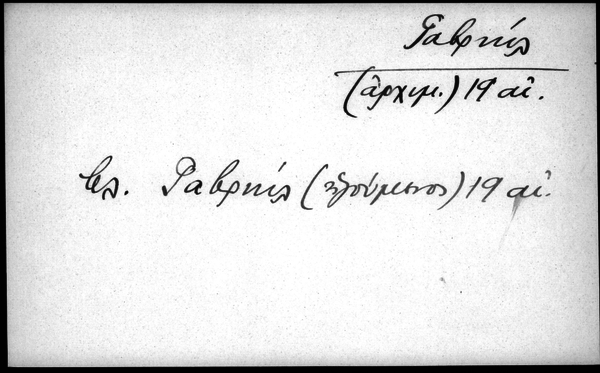 Γαβριήλ
(ἀρχιμ.) 19 αἰ.
βλ. Γαβριήλ (ἡγούμενος) 19 αἰ.